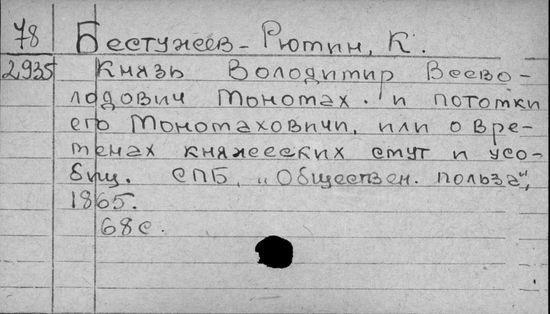 78 Бестужев-Рюмин, К.
2935 Князь Володимир Всево-
лодович Мономах. и потомки
его Мономаховичи, или о вре-
менах княжеских смут и усо-
биц. СПБ, "Обществен. польза",
1865.
68с.